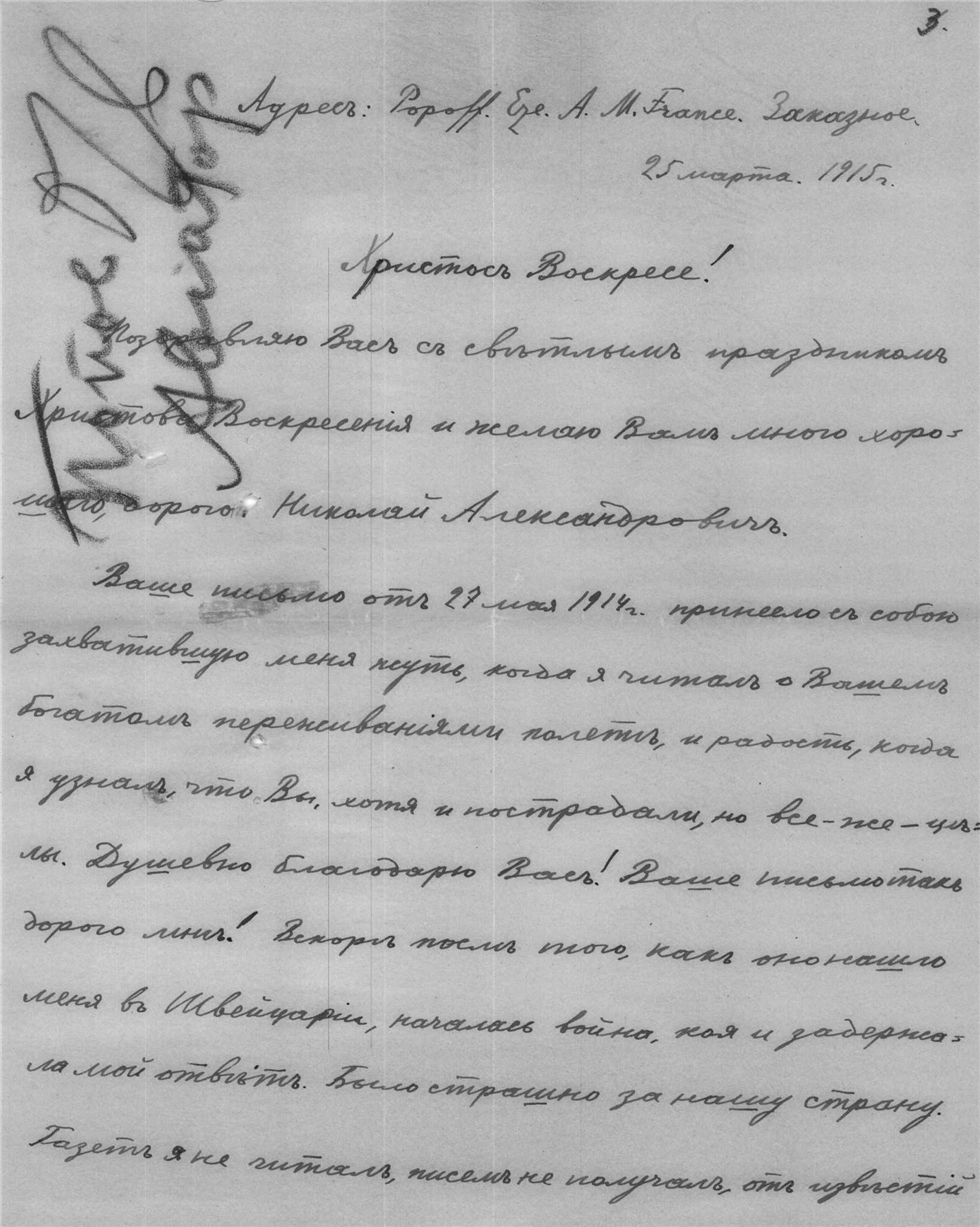 3.
Адресъ: Popoff. Eze. A. M. France. Заказное.
25 марта. 1915 г.
Христосъ Воскресе!
Поздравляю Васъ съ свѣтлымъ праздникомъ
Христова Воскресенія и желаю Вамъ много хоро=
шаго, дорогой Николай Александровичъ.
Ваше письмо отъ 27 мая 1914 г. принесло съ собою
захватившую меня жуть, когда я читалъ о Вашемъ
богатомъ переживаніями полетѣ, и радость, когда
я узналъ, что Вы, хотя и пострадали, но все-же-цѣ=
лы. Душевно благодарю Васъ! Ваше письмо такъ
дорого мнѣ! Вскорѣ послѣ того, какъ оно нашло
меня въ Швейцаріи, началась война, коя и задержа=
ла мой отвѣтъ. Было страшно за нашу страну.
Газетъ я не читалъ, писемъ не получалъ, отъ извѣстій
Авиатор